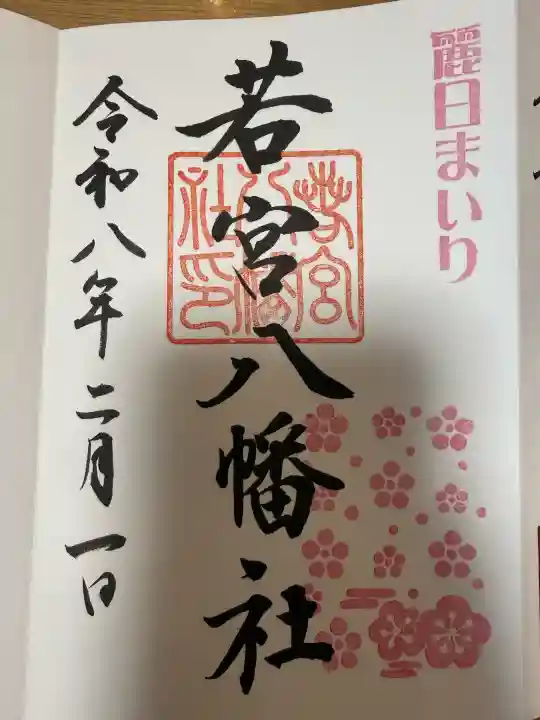 麗日まいり
若宮八幡社
若宮八幡社印
令和八年二月一日